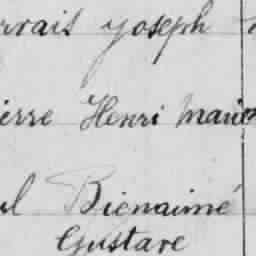 rvais Joseph
ierre Henri Marie
ul Bienaimé
Gustave